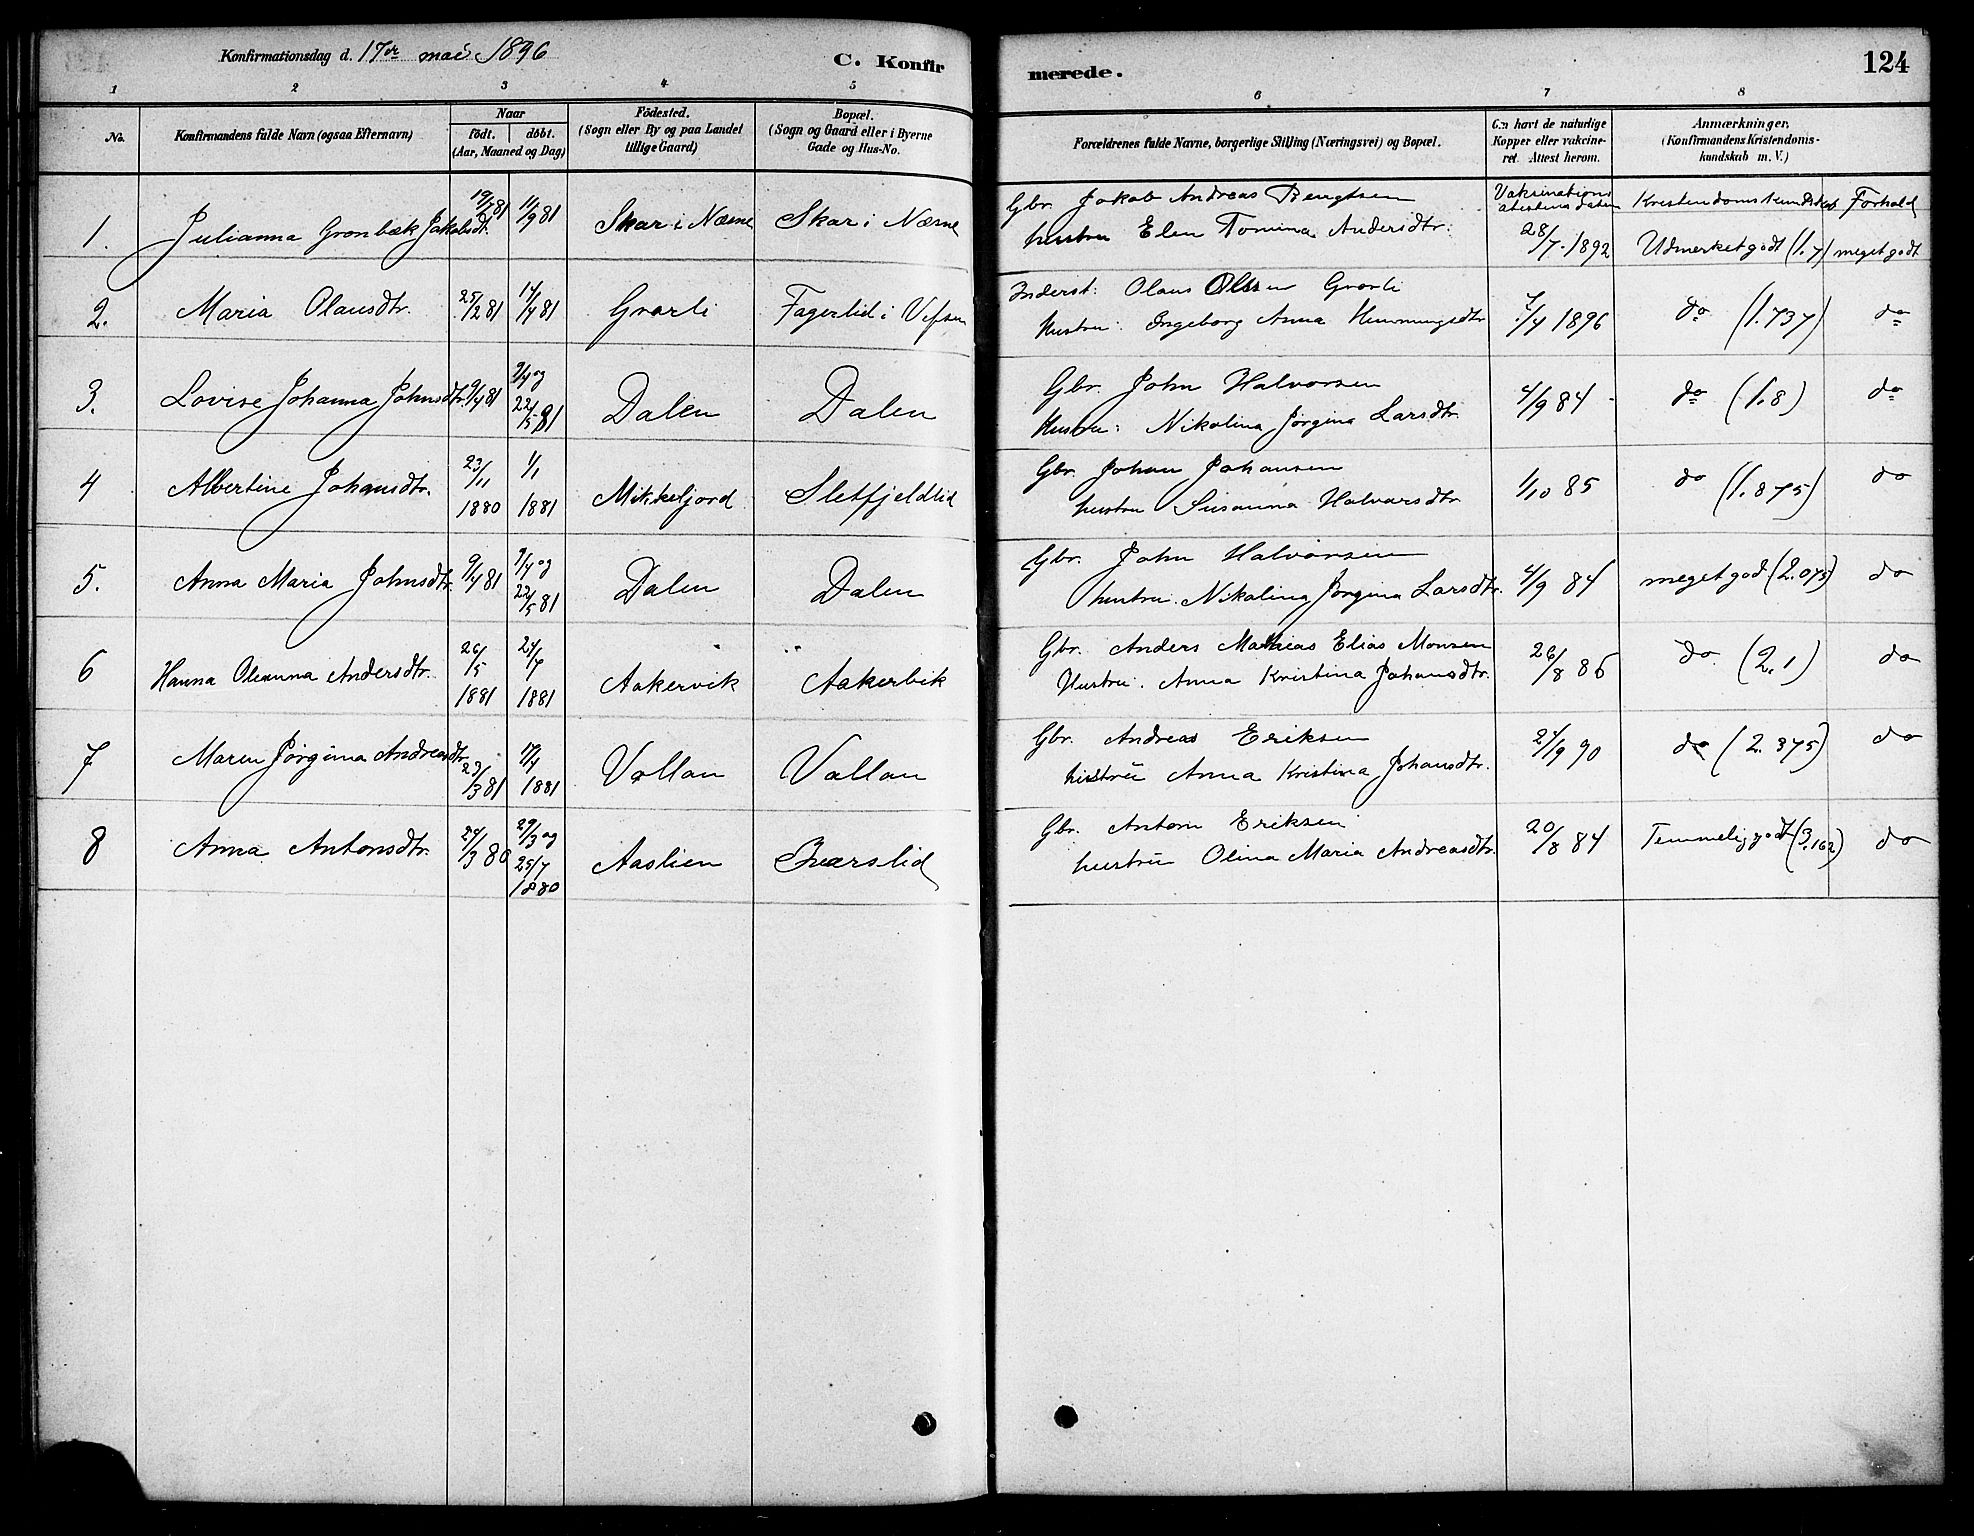 Konfirmationsdag d. 17er mai 1896
C. Konfirmerede.
124
1 2 3 4 5 6 7 8
No.
Konfirmandens fulde Navn (ogsaa Efternavn)
Naar
födt. döbt.
(Aar, Maaned og Dag)
Födested.
(Sogn eller By og paa Landet
tillige Gaard)
Bopæl.
(Sogn og Gaard eller i Byerne
Gade og Hus-No.
Forældrenes fulde Navne, borgerlige Stilling (Næringsvei) og Bopæl.
Om havt de naturlige
Kopper eller vakcine-
ret. Attest herom.
Anmærkninger.
(Konfirmandens Kristendoms-
kundskab m. V.)
1. Julianna Grønbæk Jakobsdt. 19/7 81 11/9 81 Skar i Næsne Skar i Næsne
Gbr. Jakob Andreas Bengtsen
hustru Elen Tomina Andersdtr.
Vaksinations
atestens datum
28/7 1892
Kristendomskundskab Forhold
Udmerket godt (1.7) meget godt
2. Maria Olausdtr. 25/2 81 14/4 81 Fagerlid i Vefsen
Inderst. Olaus Olsen
Hustru: Ingeborg Anna Hemmingsdtr
7/4 1896 do (1.737) do
3. Lovise Johanna Johnsdtr. 9/4 81 9/4 og
22/5 81 Dalen Dalen
Gbr. John Halvorsen
Hustru: Nikolina Jørgina Larsdtr.
4/9 84 do (1.8) do
4 Albertine Johansdtr. 23/11
1880 1/1
1881 Mikkeljord Sletfjeldlid
Gbr. Johan Johansen
hustru Susanna Halvarsdtr
1/10 85 do (1.875) do
5. Anna Maria Johnsdtr. 9/4 81 9/4 og
22/5 81 Dalen Dalen
Gbr. John Halvorsen
hustru. Nikolina Jørgina Larsdtr.
4/9 84 meget god (2.075) do
6 Hanna Oleanna Andersdtr. 26/5
1881 24/7
1881 Aakervik Aakervik
Gbr. Anders Mathias Elias Monsen
Hustru. Anna Kristina Johansdtr.
26/8 86 do (2.1) do
7 Maren Jørgina Andreasdtr. 23/3 81 17/4
1881 Vollan Vollan
Gbr. Andreas Eriksen
hustru Anna Kristina Johansdtr.
24/9 90 do (2.375) do
8 Anna Antonsdtr. 24/3 80 29/3 og
25/7
1880 Aaslien
Gbr. Anton Eriksen
hustru Olina Maria Andreasdtr.
20/8 84 Temmelig godt (3.162) do